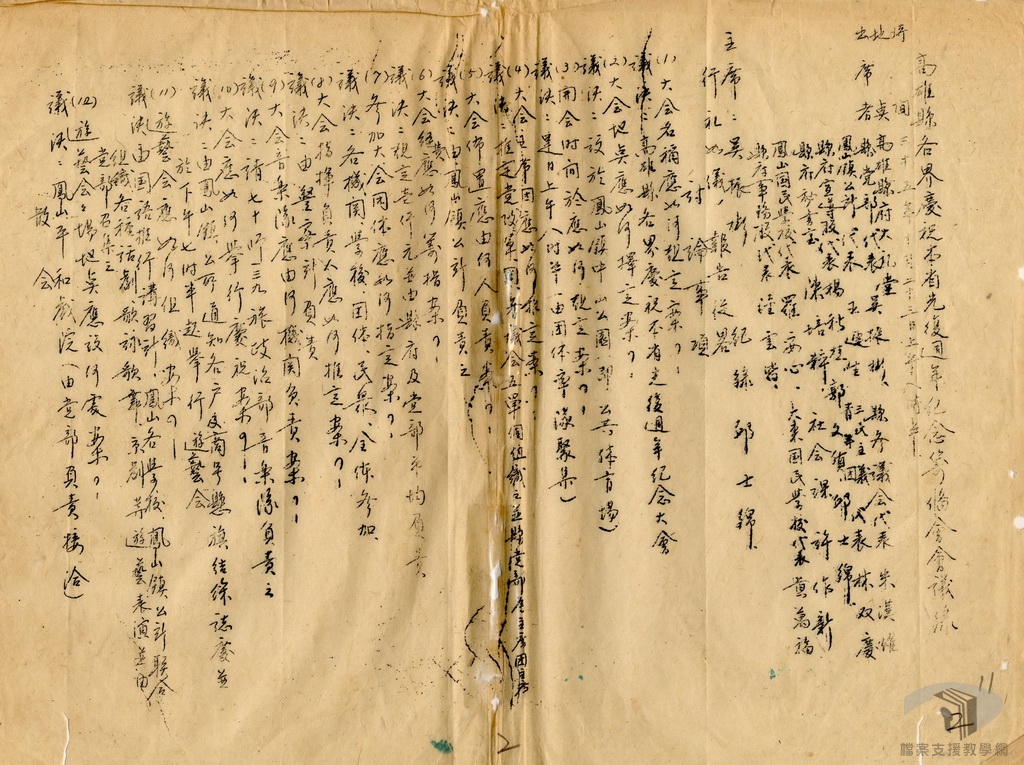 高雄縣各界慶祝本省光復週年紀念籌備會會議錄
時間 三十五年
地点 高雄縣府大礼堂
出席者 高雄縣府代表 吳振彬 縣参議会代表 朱漢耀
縣党部代表 三民主義青年团代表 林双慶
鳳山鎮公所代表
縣府宣導股代表 楊 郭文偵 邱士錦
縣府秘書室 陳培粹 社会課 許作新
鳳山國民學校代表 羅安心 大東國民學校代表 黃萬福
縣府軍務股代表 陸雲
主席：吳振彬 紀錄 邱士錦
行礼如儀 報告從畧
討論事項
(1)大会名稱應如何規定案？
議決：高雄縣各界慶祝本省光復週年紀念大會
(2)大会地点應如何擇定案？
議決：設於鳳山鎮中山公園(即公共体育場)
(3)開会時间於應如何規定案？
議決：是日上午八时半(由团体率隊聚集)
(4)大会主席团應如何推定案？
議決：推定党政軍团参議会五單個組織之並縣黨部為主席团
(5)大会佈置應由何人員責案？
議決：由鳳山鎮公所負責之
(6)大会經費應如何籌措案？
議決：規定壹仟元並由縣府及党部平均負責
(7)参加大会团体應如何指定案？
議決：各機関、學校、团体、民衆、全体参加
(8)大会指揮負責人應如何推定案？
議決：由警察所負責
(9)大会音樂隊應由何機関負責案？
議決：請七十師三九旅政治部音樂隊負責之
(10)大会應如何舉行慶祝案？
議決：由鳳山鎮公所通知各户及商号懸旗結綵誌慶並於下午七时半起舉行遊藝会
(11)遊藝会應如何組織案？
議決：由国語推行講習所、鳳山各學校、鳳山鎮公所聯合組織各種話劇、歌詠歌舞、京劇等遊藝表演並由党部召集之
(12)遊藝会場地点應設何處案？
議決：鳳山平和戲院(由党部負責接洽)
散会
2
11
檔案支援教學網